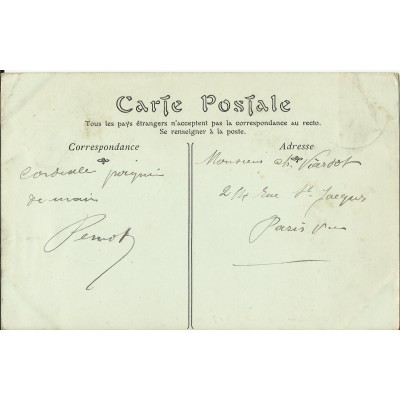 Carte Postale
Tous les pays étrangers n'acceptent pas la correspondance au recto.
Se renseigner à la poste.
Correspondance
Adresse
Cordiale poignée
de main
Monsieur Ch. Viardot
214 Rue St Jacques
Paris